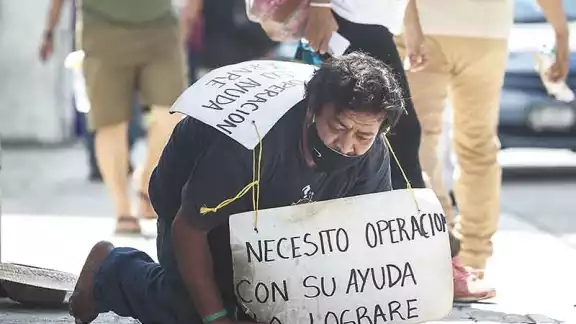 OPERACION
AYUDA
NECESITO OPERACION
CON SU AYUDA
LOGRARE